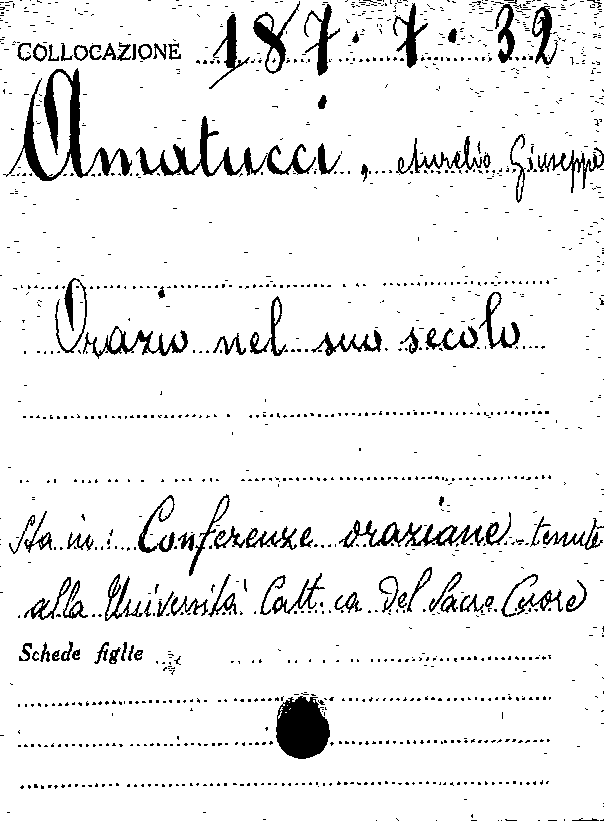 COLLOCAZIONE 187.7.32
Amatucci, Aurelio Giuseppe
Orazio nel suo secolo
Sta in: Conferenze oraziane tenute
alla Università Catt.ca del Sacro Cuore
Schede figlie